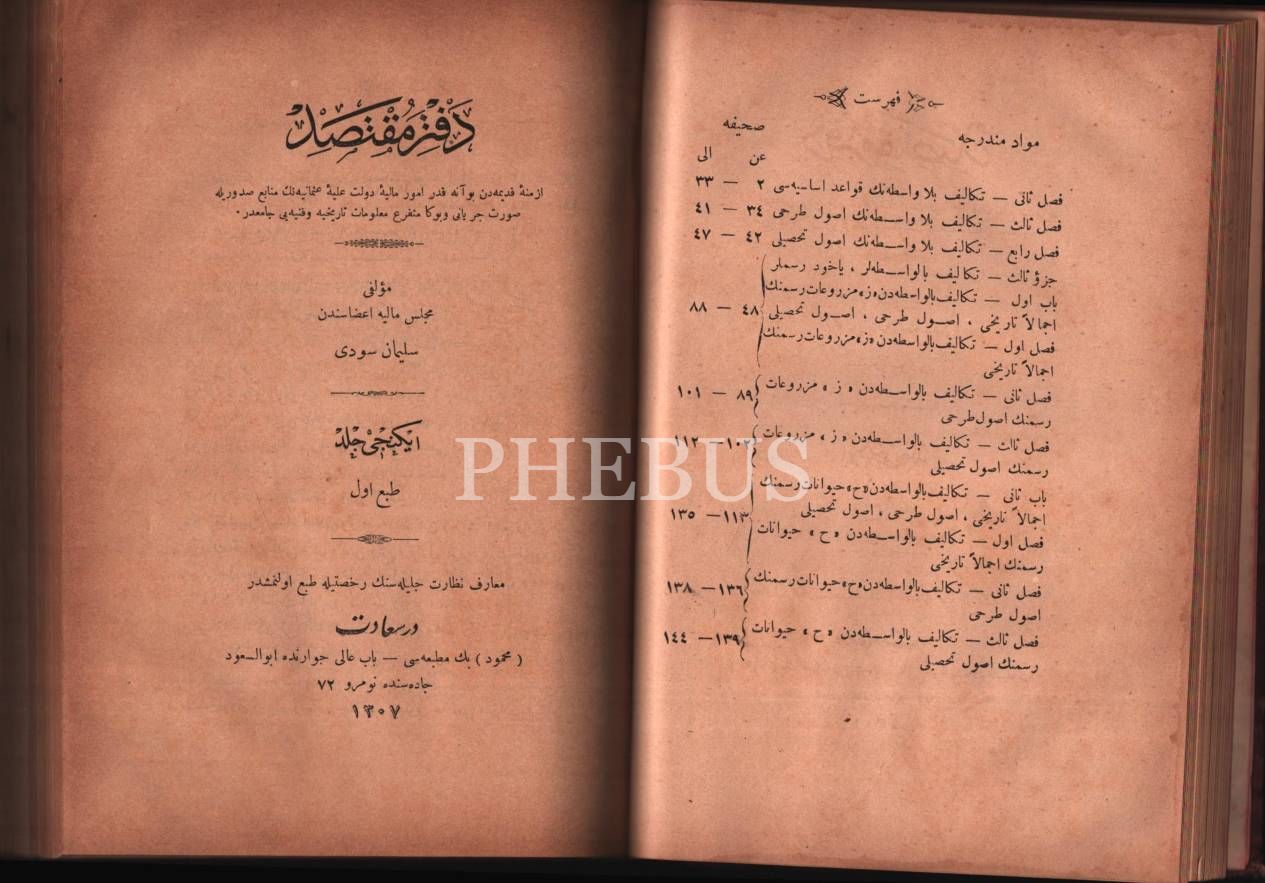 دَفْتَرِ مُقْتَصِدْ
ازمنهٔ قدیمه‌دن بو آنه قدر امور مالیهٔ دولت علیهٔ عثمانیه‌نك منابع صدوریله
صورت جریانی وبوكا متفرع معلومات تاریخیه وفنیه‌یی جامعدر.
مؤلفی
مجلس مالیه اعضاسندن
سلیمان سودی
ایكنجی جلد
طبع اول
معارف نظارت جلیله‌سنك رخصتیله طبع اولنمشدر
درسعادت
( محمود ) بك مطبعه‌سی — باب عالی جوارنده ابوالسعود
جاده‌سنده نومرو ٧٢
١٣٠٧
فهرست
مواد مندرجه صحیفه
عن الی
فصل ثانی — تكالیف بلا واسطه‌نك قواعد اساسیه‌سی ٢ — ٣٣
فصل ثالث — تكالیف بلا واسطه‌نك اصول طرحی ٣٤ — ٤١
فصل رابع — تكالیف بلا واسطه‌نك اصول تحصیلی ٤٢ — ٤٧
جزؤ ثالث — تكالیف بالواسطه‌لر ، یاخود رسملر
باب اول — تكالیف بالواسطه‌دن «ز» مزروعات رسمنك
اجمالاً تاریخی ، اصول طرحی ، اصول تحصیلی ٤٨ — ٨٨
فصل اول — تكالیف بالواسطه‌دن «ز» مزروعات رسمنك
اجمالاً تاریخی
فصل ثانی — تكالیف بالواسطه‌دن « ز » مزروعات ٨٩ — ١٠١
رسمنك اصول طرحی
فصل ثالث — تكالیف بالواسطه‌دن « ز » مزروعات ١٠٢ — ١١٢
رسمنك اصول تحصیلی
باب ثانی — تكالیف بالواسطه‌دن «ح» حیوانات رسمنك
اجمالاً تاریخی ، اصول طرحی ، اصول تحصیلی ١١٣ — ١٣٥
فصل اول — تكالیف بالواسطه‌دن « ح » حیوانات
رسمنك اجمالاً تاریخی
فصل ثانی — تكالیف بالواسطه‌دن «ح» حیوانات رسمنك ١٣٦ — ١٣٨
اصول طرحی
فصل ثالث — تكالیف بالواسطه‌دن « ح » حیوانات ١٣٩ — ١٤٤
رسمنك اصول تحصیلی
PHEBUS